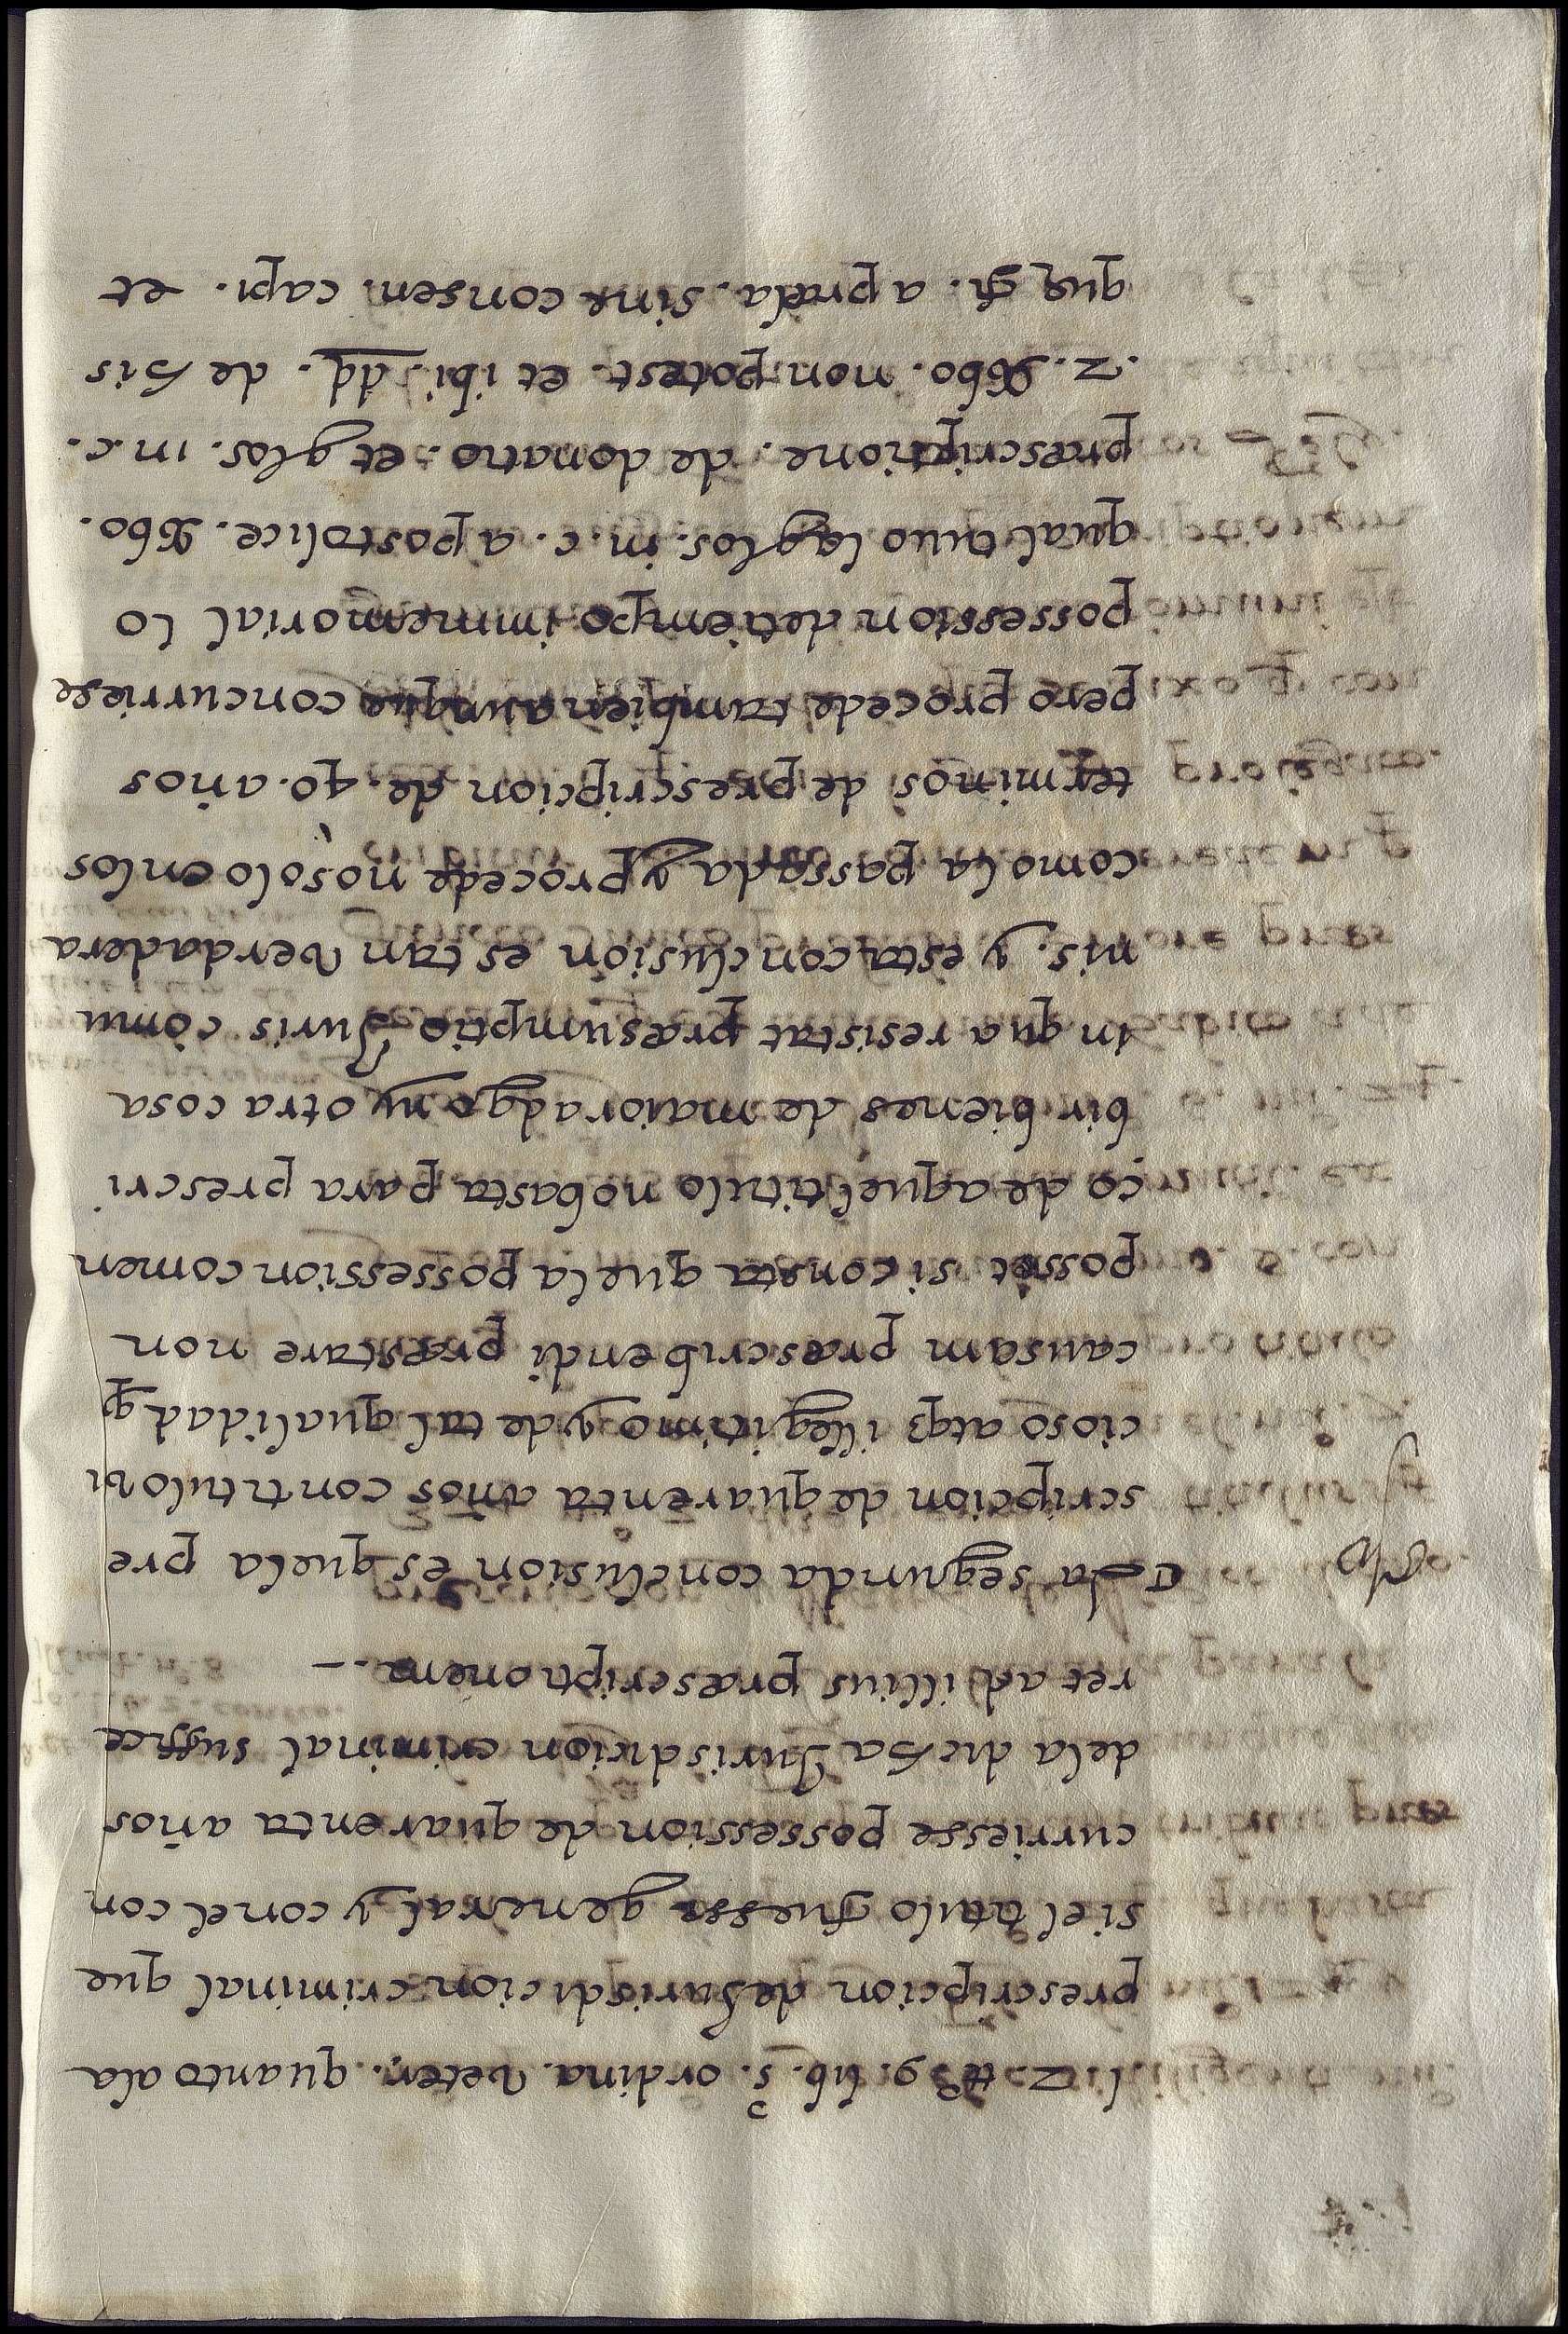 l. 2. tt. 9. lib. 5. ordina. veter. quanto ala
prescripcion de Jurisdicion criminal que
si el titulo fuesse general y con el con
curriesse possession de quarenta años
dela dicha Jurisdicion criminal suffice
ret ad illius præscriptionem. —
La segunda conclusion es quela pre
scripcion de quarenta años con titulo vi
cioso atqȝ illegitimo y de tal qualidad q̄
causam præscribendi præstare non
posset si consta que la possession comen
ço de aquel titulo no basta para prescri
bir bienes de maioradgo ny otra cosa
In qua resistat præsumptio Juris comu
nis. y esta conclusion es tan verdadera
como la passada y procede no solo en los
terminos de prescripcion de 40. años
pero procede tambien aunque concurriese
possession de tiempo immemorial lo
qual tuuo la glos. in. c. apostolice.
præscriptione. de donatio. et glos. in. c.
2. non potest. et ibi. dd. de his
quæ fi. a præla. sine consen. capi. et